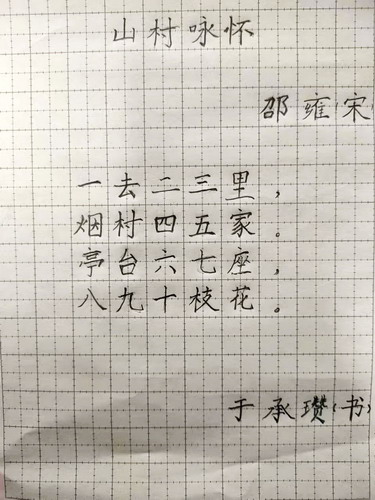 山村咏怀
邵雍(宋)
一去二三里，
烟村四五家。
亭台六七座，
八九十枝花。
于承瓒(书)